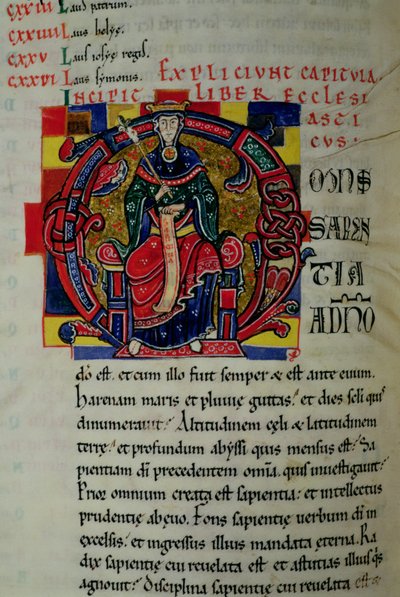 CXXIII Laus patrum.
CXXIIII Laus helye.
CXXV Laus iosye regis.
CXXVI Laus symonis. EXPLICIUNT CAPITULA
INCIPIT LIBER ECCLESI
ASTI
CUS:
OMNS
SAPIEN
TIA
ADNO
dō est. et cum illo fuit semper & est ante euum.
Harenam maris et pluuię guttas. et dies scli quis
dinumerauit? Altitudinem cęli & latitudinem
terrę. et profundum abyssi quis mensus est? Sa
pientiam dī precedentem omīa. quis inuestigauit?
Prior omnium creata est sapientia. et intellectus
prudentię ab euo. Fons sapientię uerbum dī in
excelsis. et ingressus illius mandata ęterna. Ra
dix sapientię cui reuelata est. et astutias illius qs
agnouit? Disciplina sapientię cui reuelata est